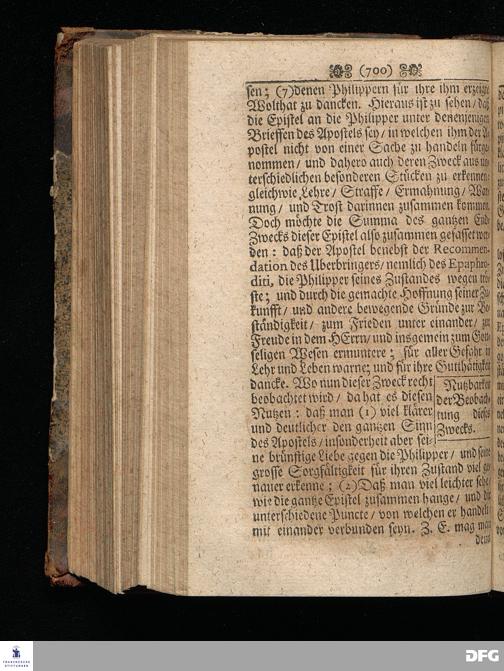 (700)
sen; (7) denen Philippern für ihre ihm erzeigte
Wolthat zu dancken. Hieraus ist zu sehen/ daß
die Epistel an die Philipper unter denenjenigen
Brieffen des Apostels sey/ in welchen ihm der A-
postel nicht von einer Sache zu handeln fürge-
nommen/ und dahero auch deren Zweck aus un-
terschiedlichen besonderen Stücken zu erkennen;
gleichwie Lehre/ Straffe/ Ermahnung/ War-
nung/ und Trost darinnen zusammen kommen.
Doch möchte die Summa des gantzen End-
Zwecks dieser Epistel also zusammen gefasset wer-
den: daß der Apostel benebst der Recommen-
dation des Uberbringers/ nemlich des Epaphro-
diti, die Philipper seines Zustandes wegen trö-
ste; und durch die gemachte Hoffnung seiner Zu-
kunfft/ und andere bewegende Gründe zur Be-
ständigkeit/ zum Frieden unter einander/ zur
Freude in dem HErrn/ und insgemein zum Gott-
seligen Wesen ermuntere; für aller Gefahr in
Lehr und Leben warne; und für ihre Gutthätigkeit
dancke. Wo nun dieser Zweck recht
beobachtet wird/ da hat es diesen
Nutzen: daß man (1) viel klärer
und deutlicher den gantzen Sinn
des Apostels/ insonderheit aber sei-
Nutzbarkeit
der Beobach-
tung dieses
Zwecks.
ne brünstige Liebe gegen die Philipper/ und seine
grosse Sorgfältigkeit für ihren Zustand viel ge-
nauer erkenne; (2) Daß man viel leichter sehe/
wie die gantze Epistel zusammen hange/ und die
unterschiedene Puncte/ von welchen er handelt
mit einander verbunden seyn. Z. E. mag man
denn
FRANCKESCHE
STIFTUNGEN
DFG